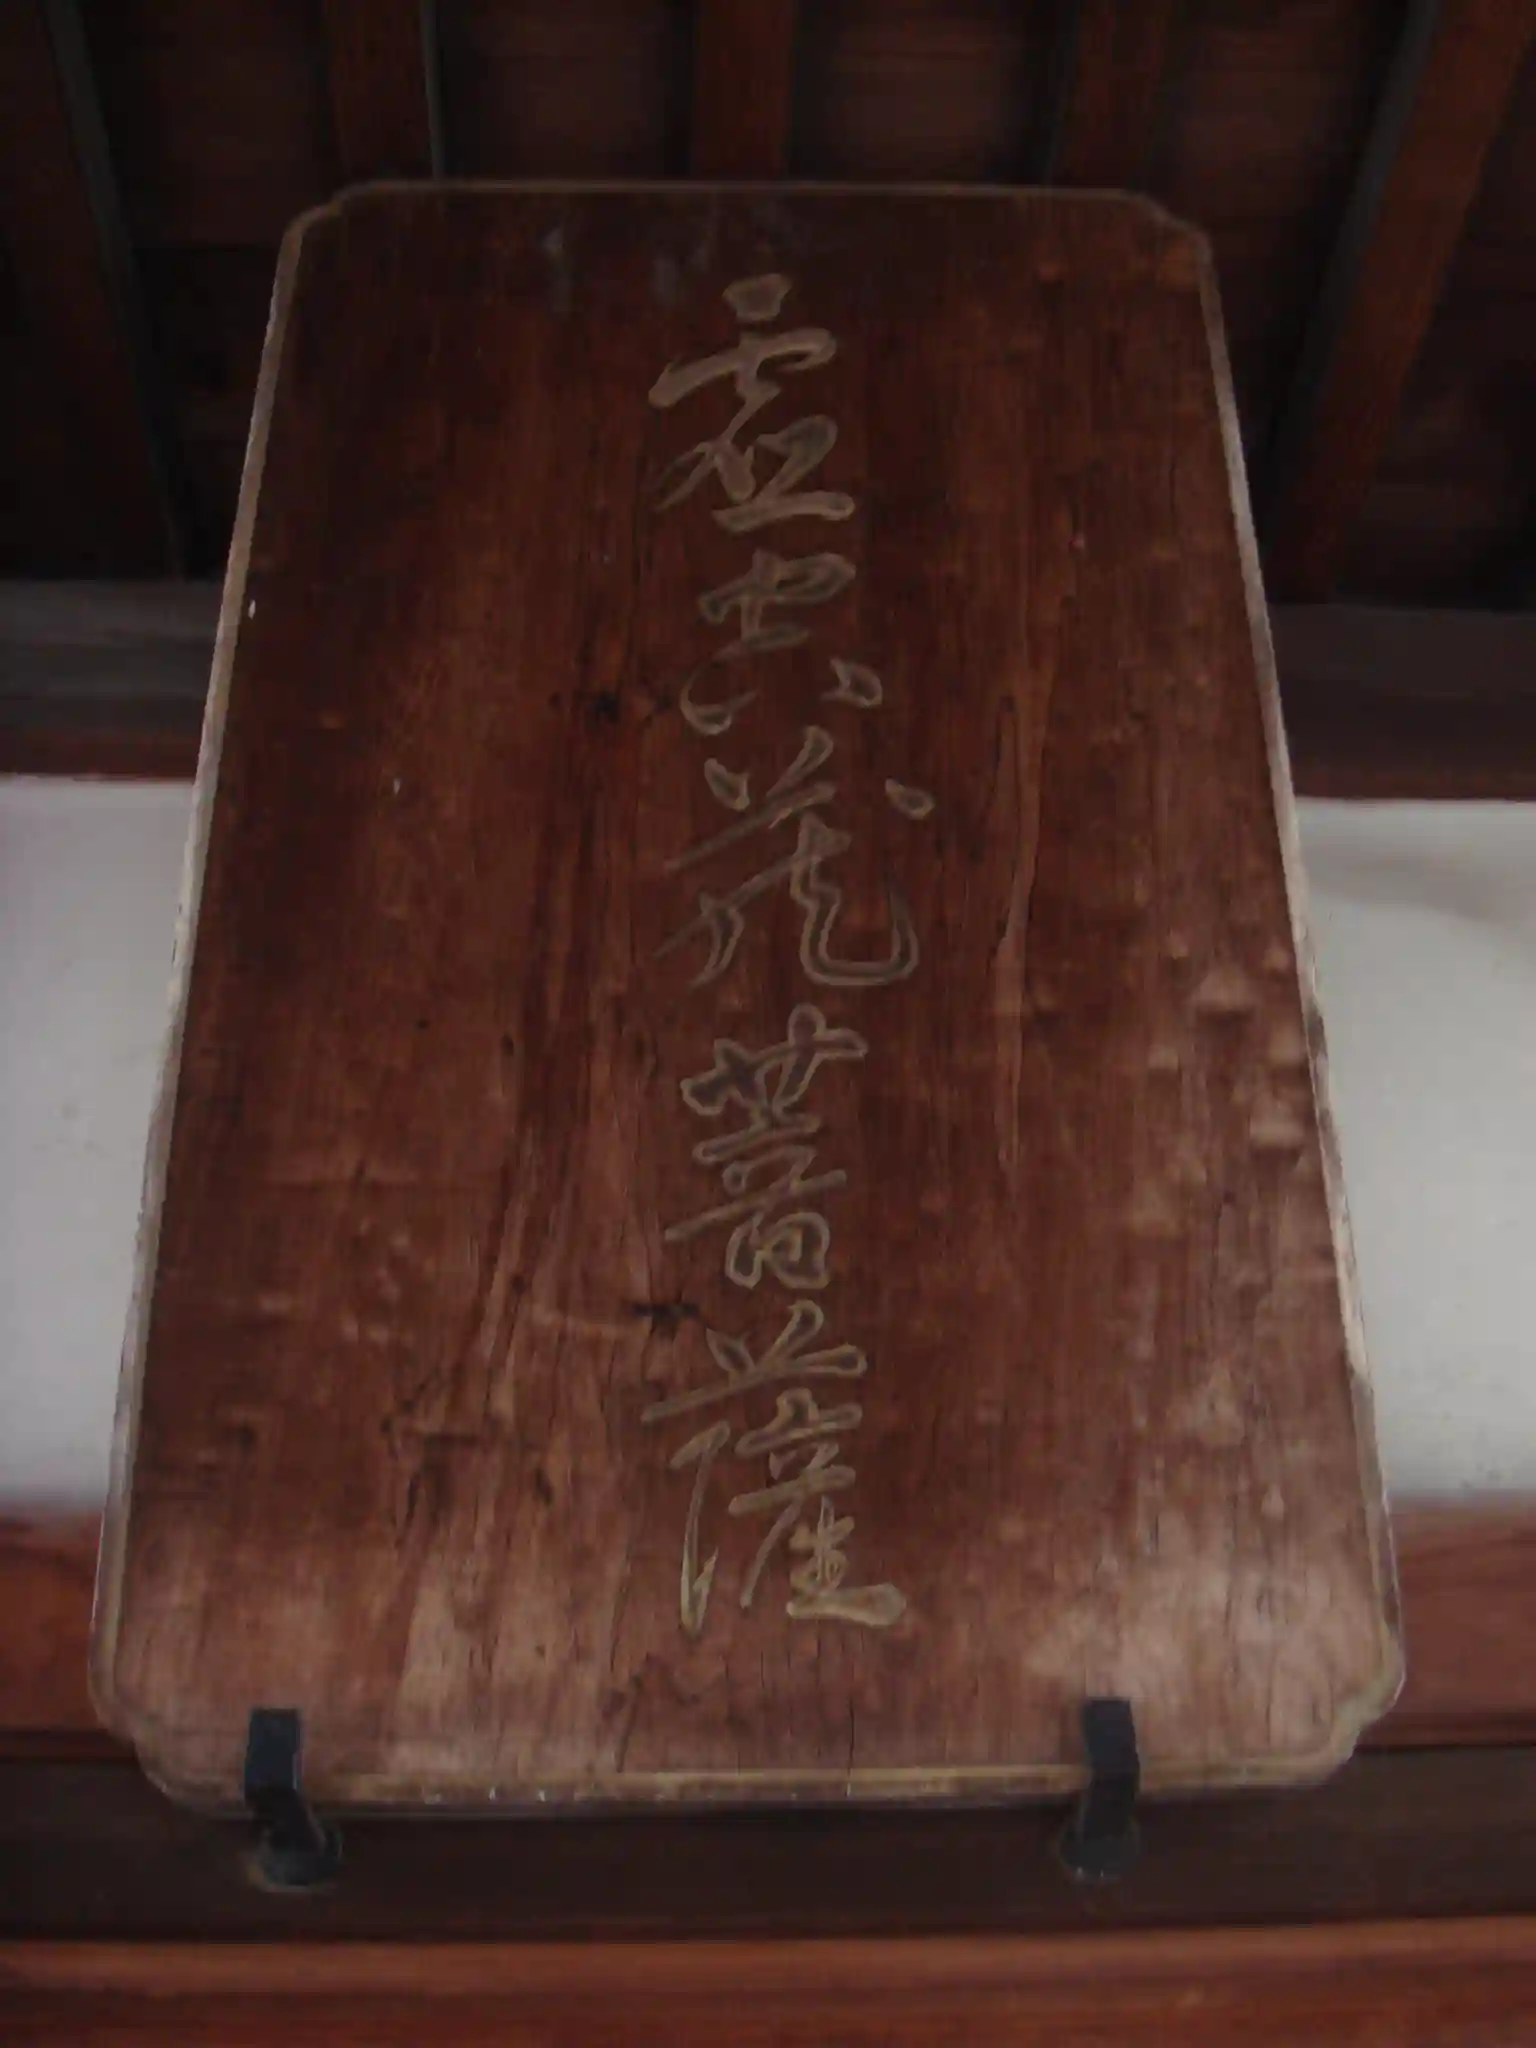 虚空蔵菩薩